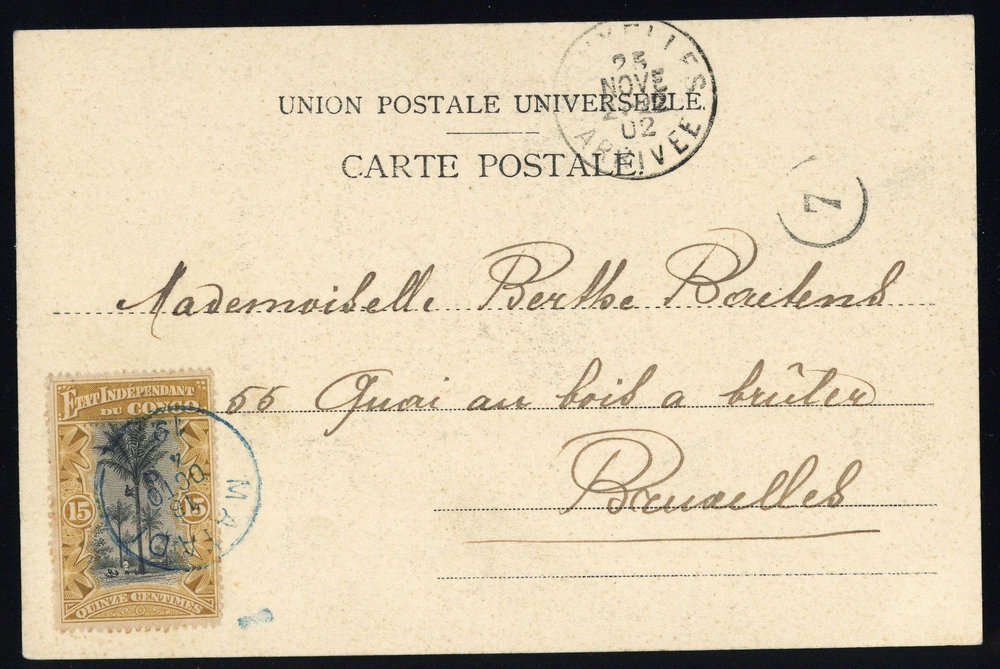 UNION POSTALE UNIVERSELLE.
CARTE POSTALE.
25
NOVE
02
ARRIVEE
7
Mademoiselle Berthe Boetens
55 Quai au bois a brûler
Bruxelles
ETAT INDÉPENDANT
DU CONGO
15 15
QUINZE CENTIMES